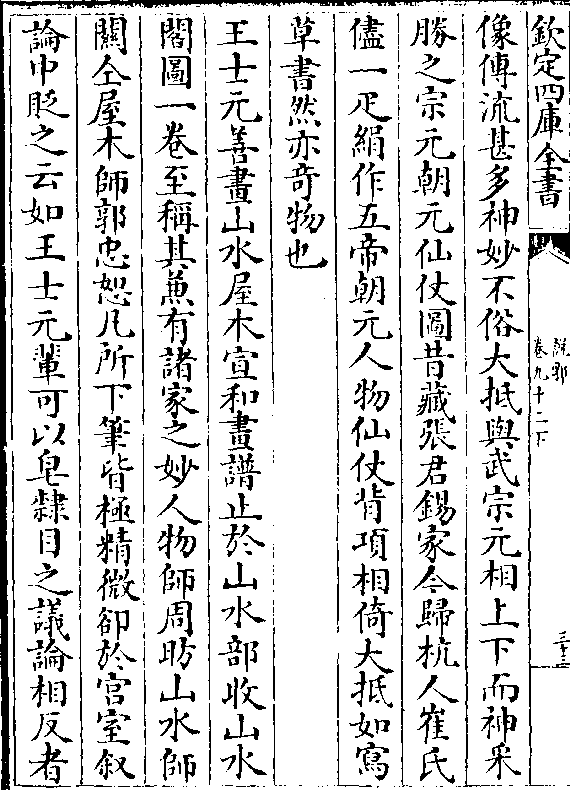 欽定四庫全書
說郛
卷九十二下
三十三
像傳流甚多神妙不俗大抵與武宗元相上下而神采
勝之宗元朝元仙仗圖昔藏張君錫家今歸杭人崔氏
儘一疋絹作五帝朝元人物仙仗背項相倚大抵如寫
草書然亦奇物也
王士元善畫山水屋木宣和畫譜止於山水部收山水
閣圖一卷至稱其兼有諸家之妙人物師周昉山水師
關仝屋木師郭忠恕凡所下筆皆極精微卻於宫室叙
論中貶之云如王士元輩可以皂隸目之議論相反者